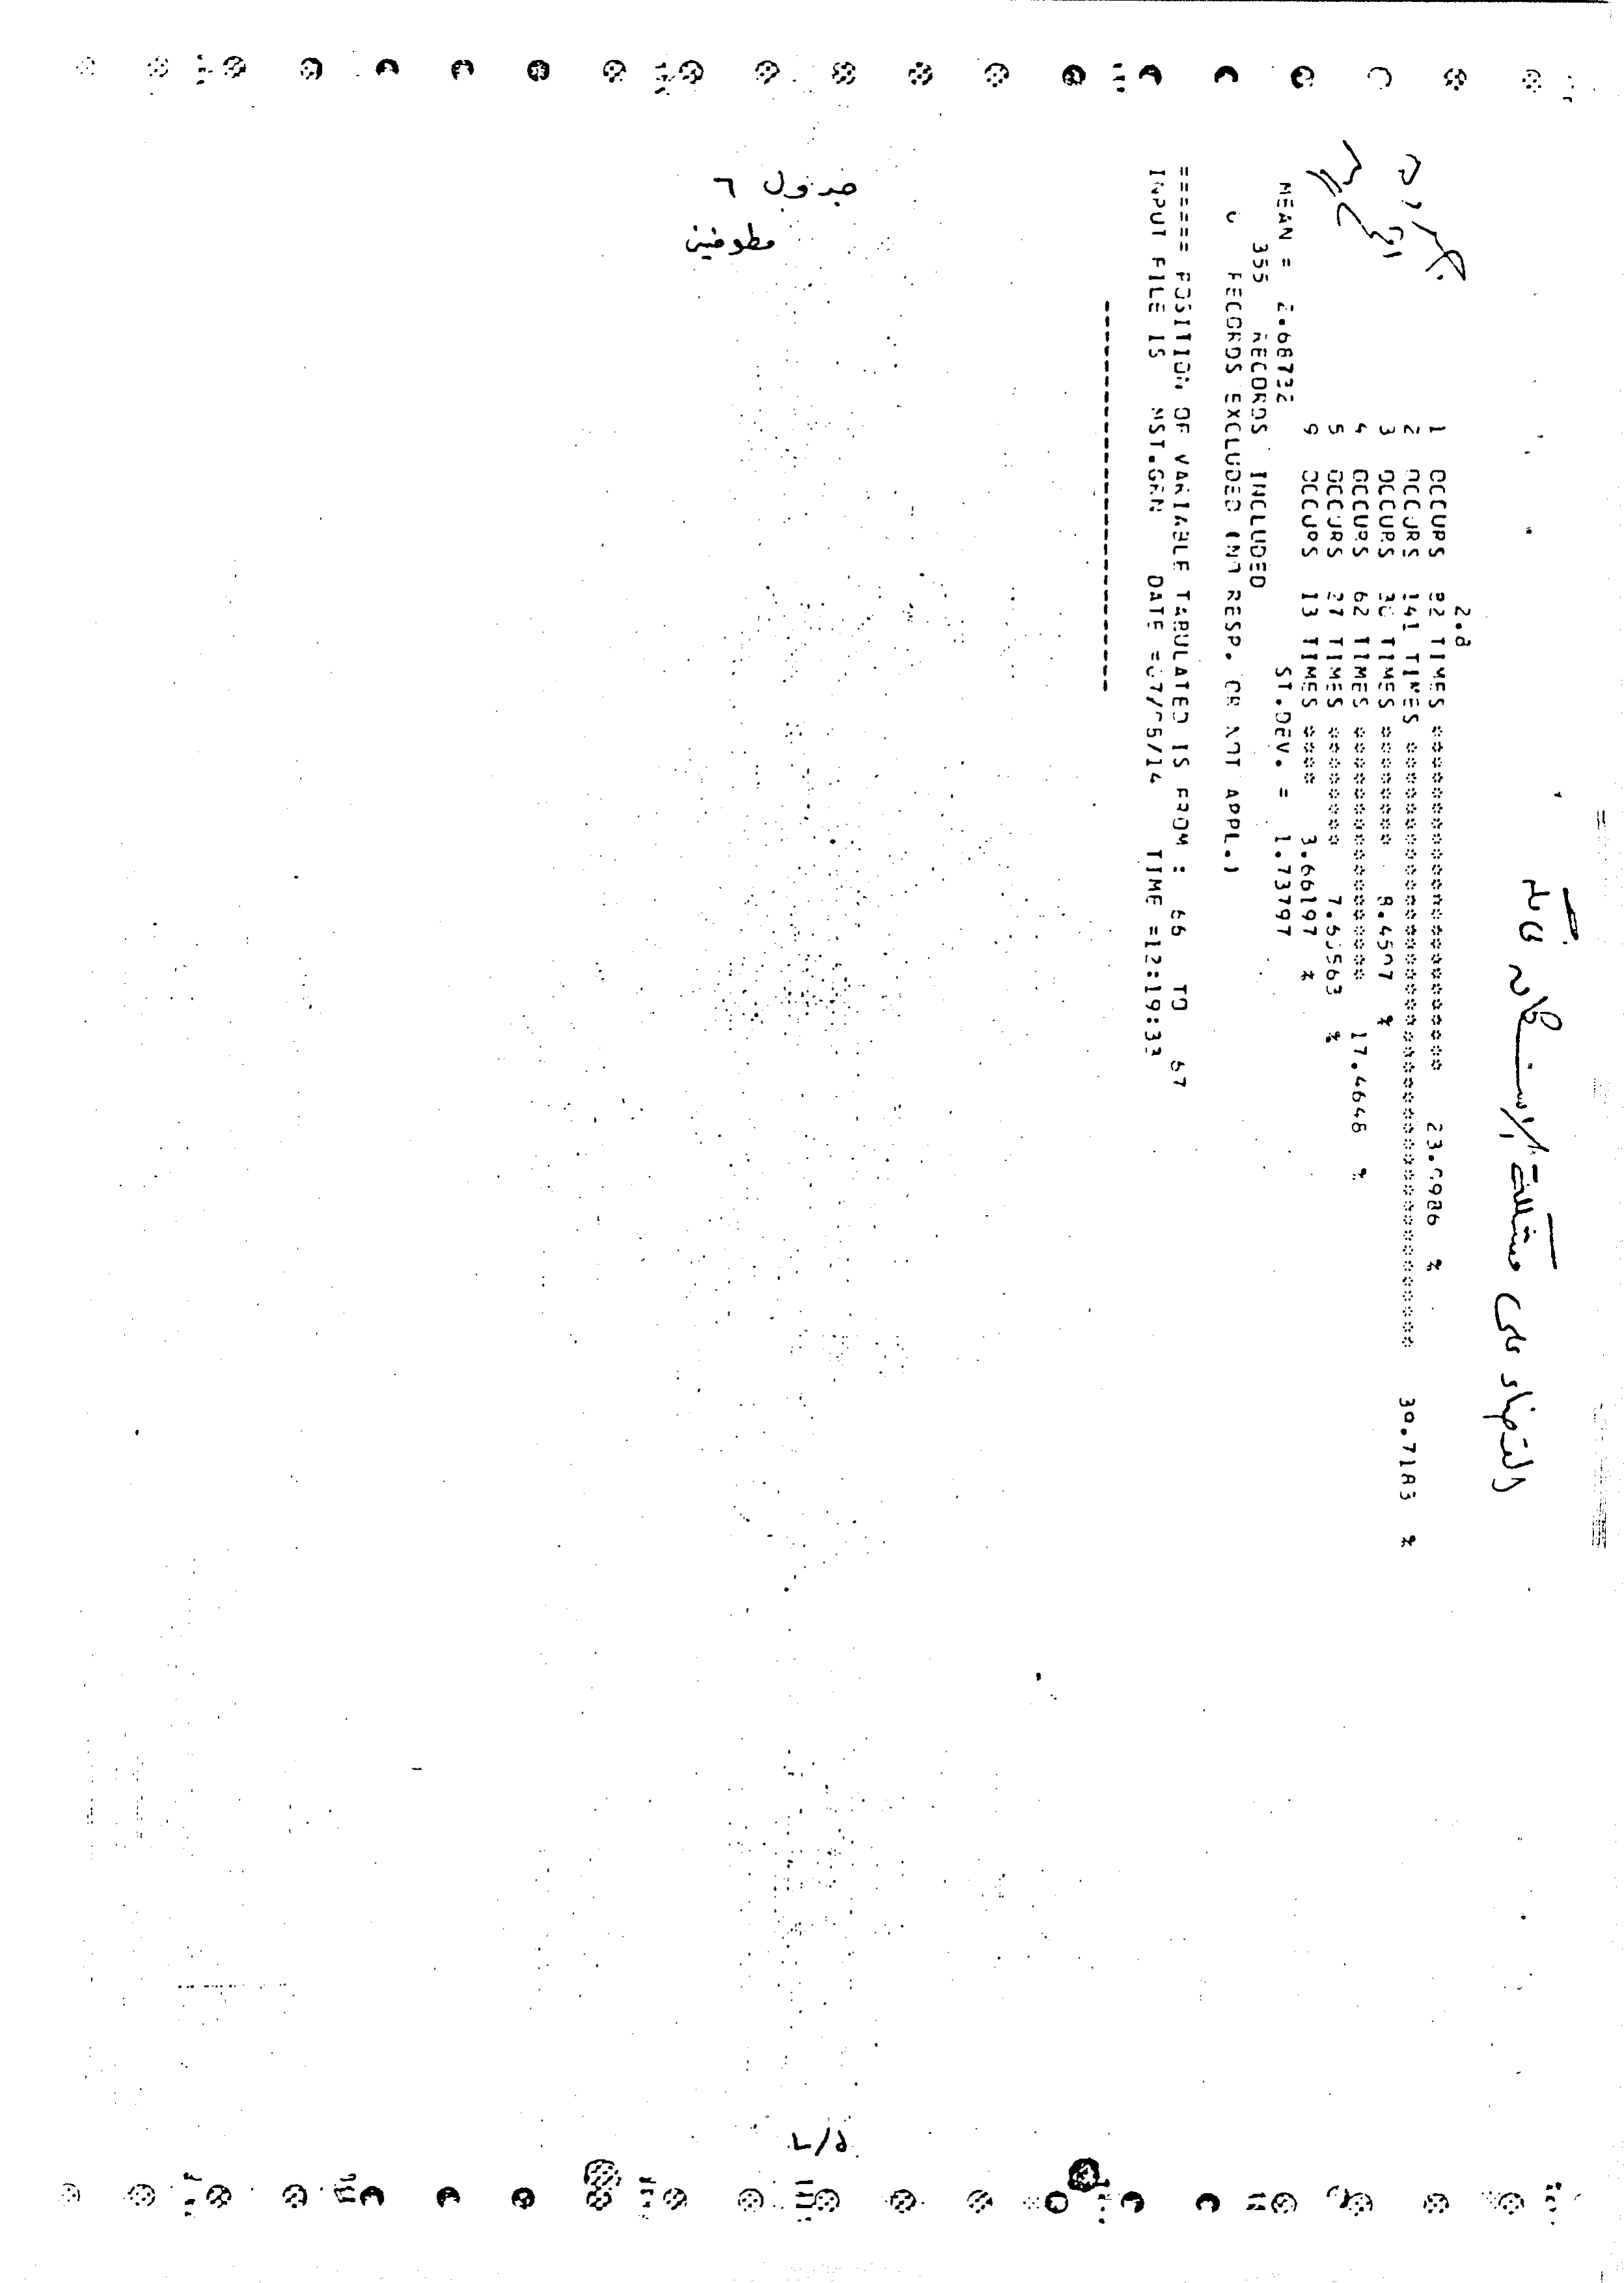 جدول ٦
مطوفين
القضاء على مشكلة الاستغلال
2.8
1 OCCURS 82 TIMES **************************** 23.0986 %
2 OCCURS 141 TIMES ************************************************* 39.7183 %
3 OCCURS 30 TIMES ********** 8.4507 %
4 OCCURS 62 TIMES ********************* 17.4648 %
5 OCCURS 27 TIMES ********** 7.60563 %
9 OCCURS 13 TIMES ***** 3.66197 %
MEAN = 2.68732 ST.DEV. = 1.73797
355 RECORDS INCLUDED
0 RECORDS EXCLUDED (NO RESP. OR NOT APPL.)
====== POSITION OF VARIABLE TABULATED IS FROM : 66 TO 67
INPUT FILE IS MST.GRN DATE =07/05/14 TIME =12:19:33
--------------------------------